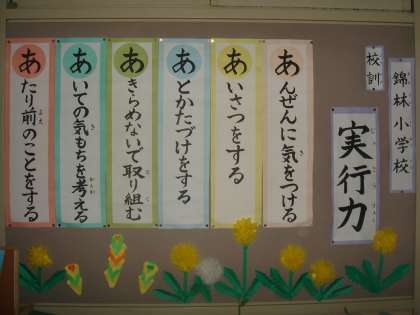 錦林小学校
校訓
実行力
あんぜんに気をつける
あいさつをする
あとかたづけをする
あきらめないで取り組む
あいての気もちを考える
あたり前のことをする